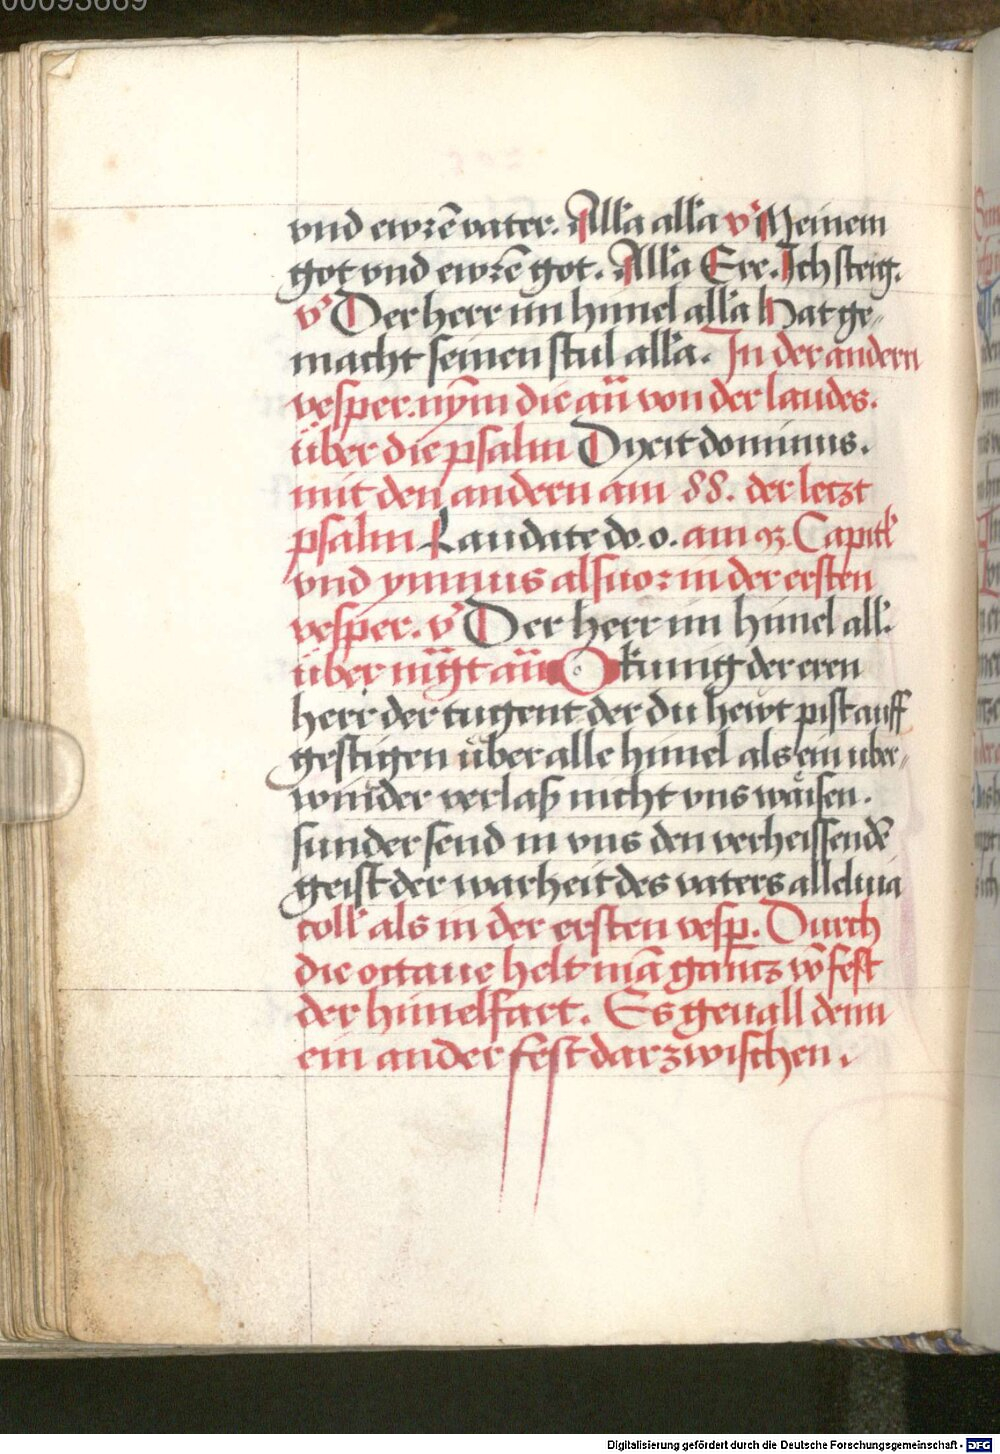 00093669
vnd ewrē vater. All'a all'a v' Meinem
got vnd ewrē got. All'a Ere. Ich steig.
v' Der herr im himel all'a Hat ge„
macht seinen stul all'a. In der andern
vesper. nym die an̄ von der laudes.
über die psalm Dyxit dominus.
mit den andern am 88. der letzt
psalm Laudate do. o. am 93. Capitl'
vnd ymnus als uor in der ersten
vesper. v' Der herr im himel all'.
über mgt an̄ O kunig der eren
herr der tugent der du hewt pist auff
gestigen über alle himel als ein uber„
winder verlaß nicht vns waisen.
sunder send in vns den verheissendē
geist der warheit des vaters alleluia
coll' als in der ersten vesp. Durch
die octaue helt mā gantz vō fest
der himelfart. Es geuall denn
ein ander fest darzwischen.
Digitalisierung gefördert durch die Deutsche Forschungsgemeinschaft - DFG